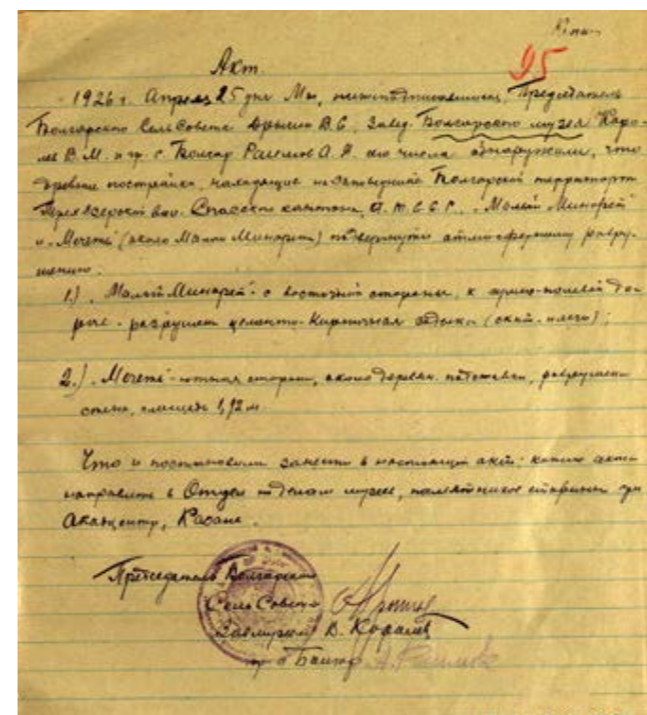 Копия
95
Акт.
1926 г. Апреля 25 дня Мы, нижеподписавшиеся, Председатель
Болгарского СельСовета В.С., Завед. Болгарского музея
В.М. и гр. с. Болгар А. его числа обнаружили, что
древние постройки, находящие на заповедной Болгарской территории
Трех Озерской вол. Спасского кантона, А.Т.С.С.Р., "Малый Минарет"
и "Мечеть" (около Малого Минарета) подвергнуты атмосферному разру-
шению.
1.) "Малый Минарет" с восточной стороны, к -полевой до-
роге - разрушен цементо-кирпичная ;
2.) "Мечеть" - южная сторона, около деревян. , разрушена
стена, 1,92 м.
Что и постановили занести в настоящий акт; копию акта
направить в Отдел по делам музеев, памятников старины при
Акадцентр, Казань.
Председатель Болгарского
СельСовета
Завмузеем В. Королев
гр. с. Болгар